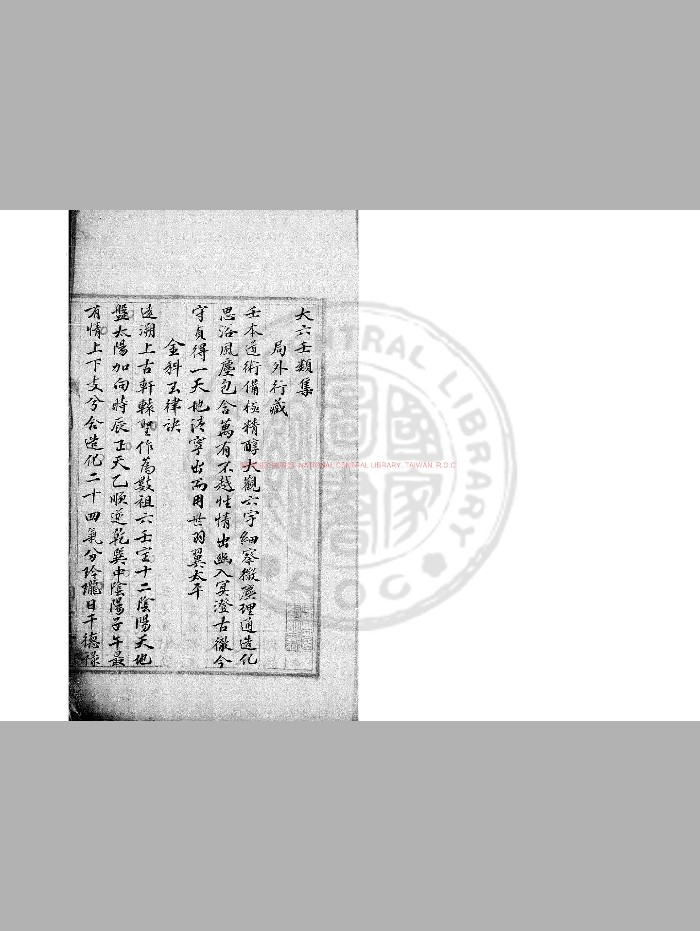 大六壬類集
局外行藏
壬本道術備極精醇大觀六宇細察微塵理通造化
思洛風塵包含萬有不越性情出幽入冥澄古徹今
守貞得一天地清寧出而用世羽翼太平
金科玉律訣
遠溯上古軒轅聖作為數祖六壬宝十二陰陽天地
盤太陽加向時辰正天乙順逆乾巽中陰陽子午最
有情上下支兮合造化二十四氣分玲瓏日干德祿
NATIONAL CENTRAL LIBRARY, TAIWAN, R.O.C
CENTRAL LIBRARY
ROC